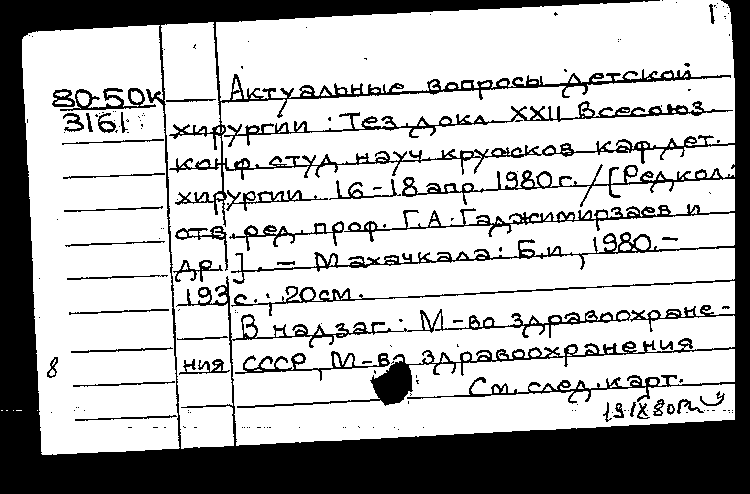 1
80-50к Актуальные вопросы детской
3161 хирургии: Тез. докл. XXII Всесоюз.
конф. студ. науч. кружков каф. дет.
хирургии. 16-18 апр. 1980г. / [Редкол.:
отв. ред. проф. Г.А. Гаджимирзаев и
др.]. - Махачкала: Б.и., 1980. -
193 с.; 20см.
В надзаг.: М-во здравоохране-
8 ния СССР, М-во здравоохранения
См. след. карт.